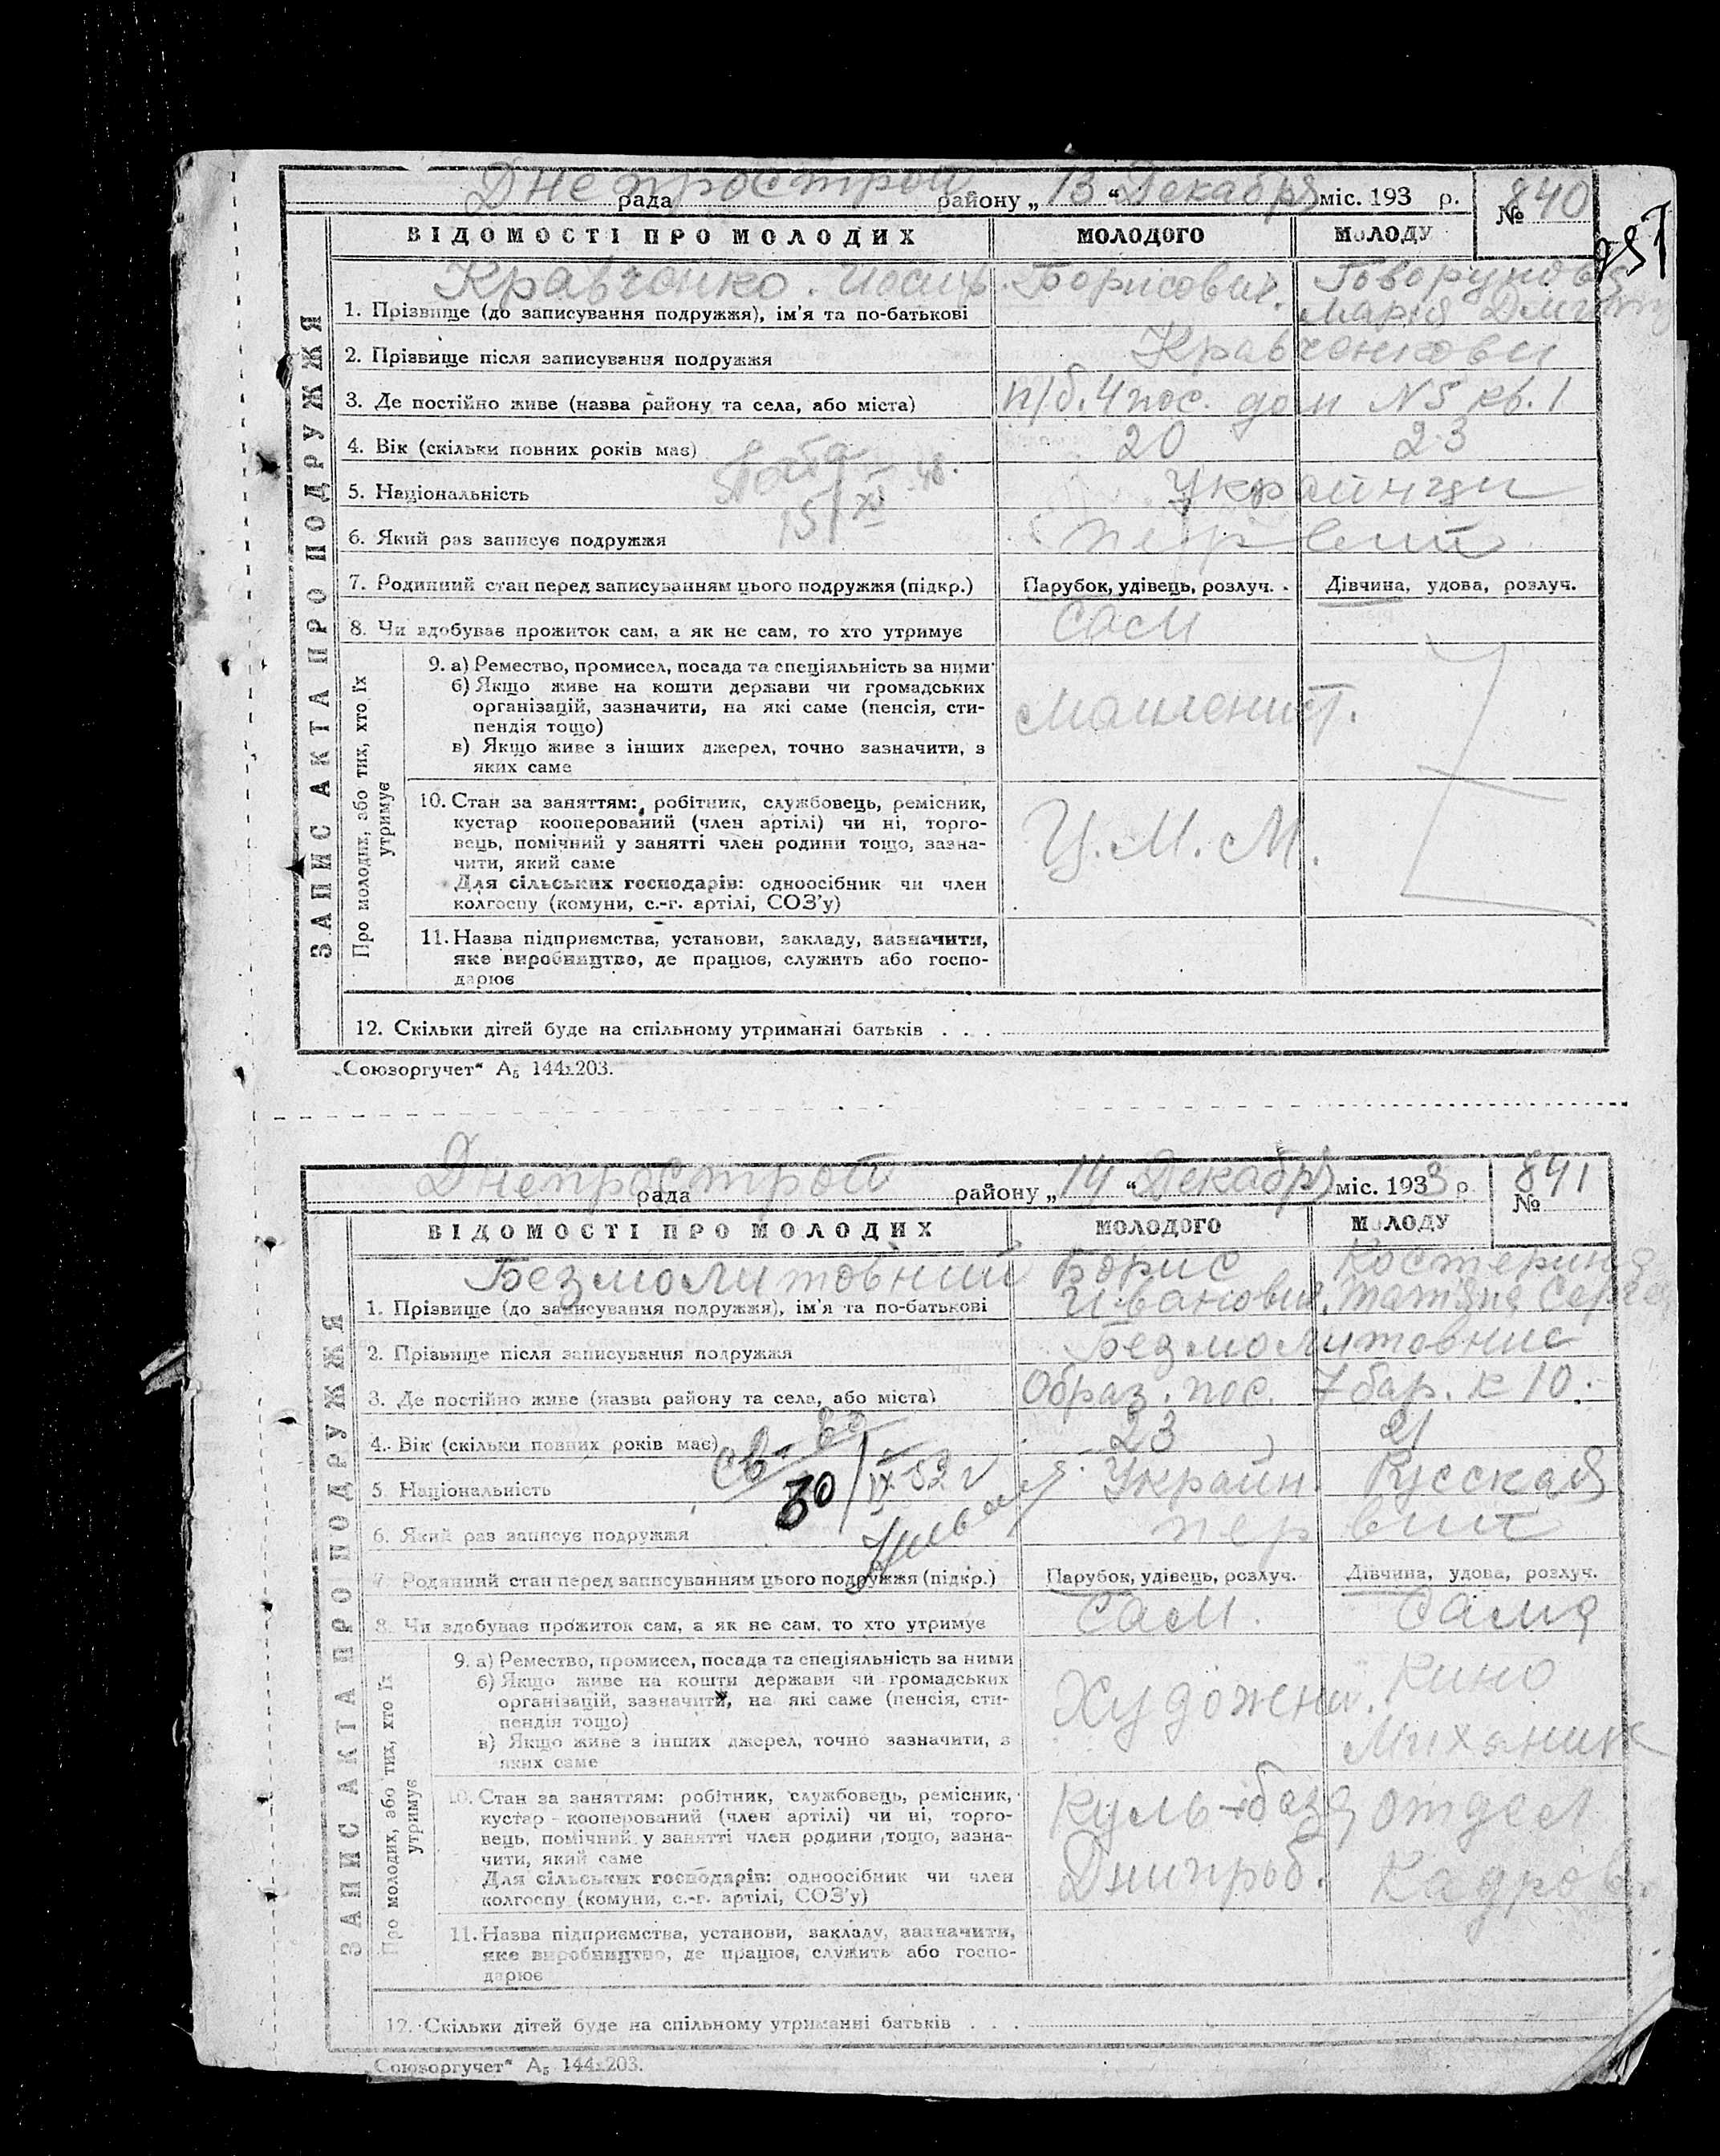 Днепрострой
рада району „13“ Декабря міс. 193 р. № 840
951
ВІДОМОСТІ ПРО МОЛОДИХ МОЛОДОГО МОЛОДУ
ЗАПИС АКТА ПРО ПОДРУЖЖЯ
Кравченко Иосиф Борисович. Говорунова
1. Прізвище (до записування подружжя), ім’я та по-батькові Мария
2. Прізвище після записування подружжя Кравченкови
3. Де постійно живе (назва району та села, або міста) п/б. 4 пос. дом N 5 кв. 1
4. Вік (скільки повних років має) 20 23
5. Національність Украинци
15/XI 48.
6. Який раз записує подружжя первий
7. Родинний стан перед записуванням цього подружжя (підкр.) Парубок, удівець, розлуч. Дівчина, удова, розлуч.
8. Чи здобуває прожиток сам, а як не сам, то хто утримує сам
Про молодих, або тих, хто їх утримує
9. а) Ремество, промисел, посада та спеціяльність за ними
б) Якщо живе на кошти держави чи громадських
організацій, зазначити, на які саме (пенсія, сти-
пендія тощо)
в) Якщо живе з інших джерел, точно зазначити, з
яких саме
10. Стан за заняттям: робітник, службовець, ремісник,
кустар кооперований (член артілі) чи ні, торго-
вець, помічний у занятті член родини тощо, зазна-
чити, який саме
Ц.М.М.
Для сільських господарів: одноосібник чи член
колгоспу (комуни, с.-г. артілі, СОЗ’у)
11. Назва підприємства, установи, закладу, зазначити,
яке виробництво, де працює, служить або госпо-
дарює
12. Скільки дітей буде на спільному утриманні батьків . . .
„Союзоргучет“ А₅ 144х203.
Днепрострой
рада району „14“ Декабря міс. 1933 р. № 841
ВІДОМОСТІ ПРО МОЛОДИХ МОЛОДОГО МОЛОДУ
ЗАПИС АКТА ПРО ПОДРУЖЖЯ
Безмолитовний Борис Костерина
1. Прізвище (до записування подружжя), ім’я та по-батькові Иванович. Татяна Серге
2. Прізвище після записування подружжя Безмолитовние
3. Де постійно живе (назва району та села, або міста) Образ. пос. 7 бар. к 10.
4. Вік (скільки повних років має) 23 21
5. Національність Украин. Русская
30/IX-52 г
6. Який раз записує подружжя первий
7. Родинний стан перед записуванням цього подружжя (підкр.) Парубок, удівець, розлуч. Дівчина, удова, розлуч.
8. Чи здобуває прожиток сам, а як не сам, то хто утримує сам. сама
Про молодих, або тих, хто їх утримує
9. а) Ремество, промисел, посада та спеціяльність за ними
б) Якщо живе на кошти держави чи громадських
організацій, зазначити, на які саме (пенсія, сти-
пендія тощо)
в) Якщо живе з інших джерел, точно зазначити, з
яких саме
Художени. Кино
Миханик
10. Стан за заняттям: робітник, службовець, ремісник,
кустар кооперований (член артілі) чи ні, торго-
вець, помічний у занятті член родини тощо, зазна-
чити, який саме
Для сільських господарів: одноосібник чи член
колгоспу (комуни, с.-г. артілі, СОЗ’у)
Куль-база отдел
Днипроб. Кадров.
11. Назва підприємства, установи, закладу, зазначити,
яке виробництво, де працює, служить або госпо-
дарює
12. Скільки дітей буде на спільному утриманні батьків . . .
„Союзоргучет“ А₅ 144х203.